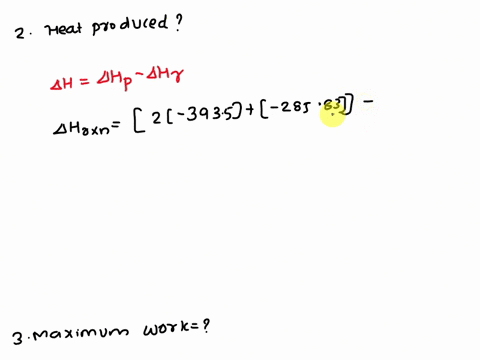 2. Heat produced?
ΔH = ΔHp - ΔHr
ΔHrxn = [2[-393.5] + [-285.83]] -
3. Maximum work = ?